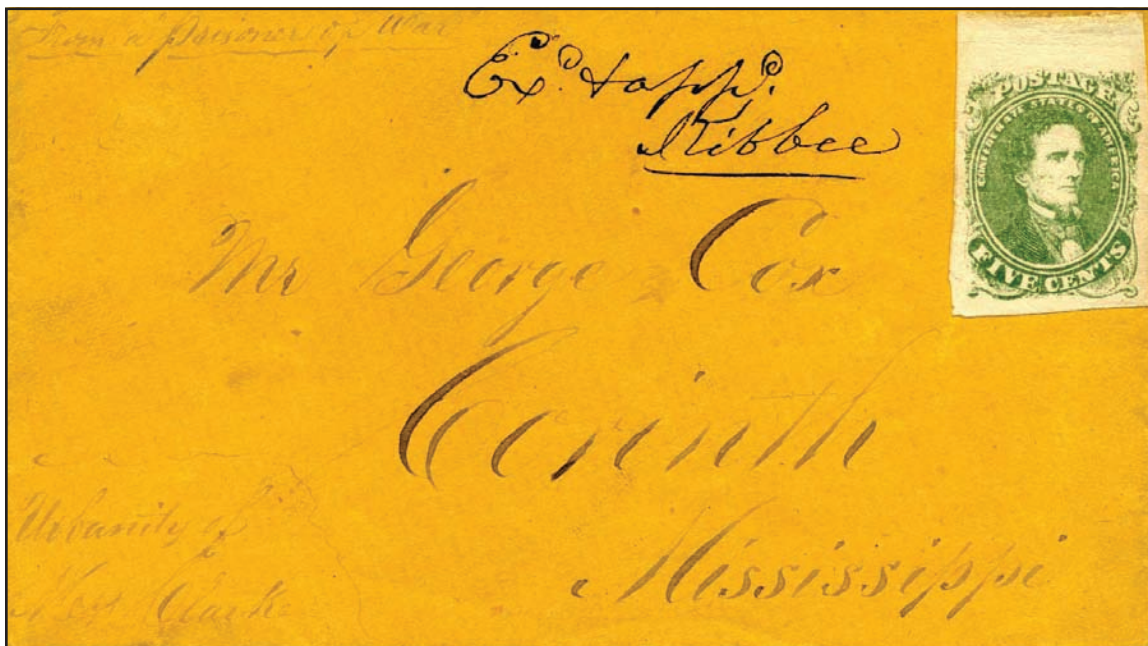 From a Prisoner of War
Exd. & appd.
Kibbee
POSTAGE
CONFEDERATE STATES OF AMERICA
FIVE CENTS
Mr George Cox
Corinth
Mississippi
Urbanity of
Clarke